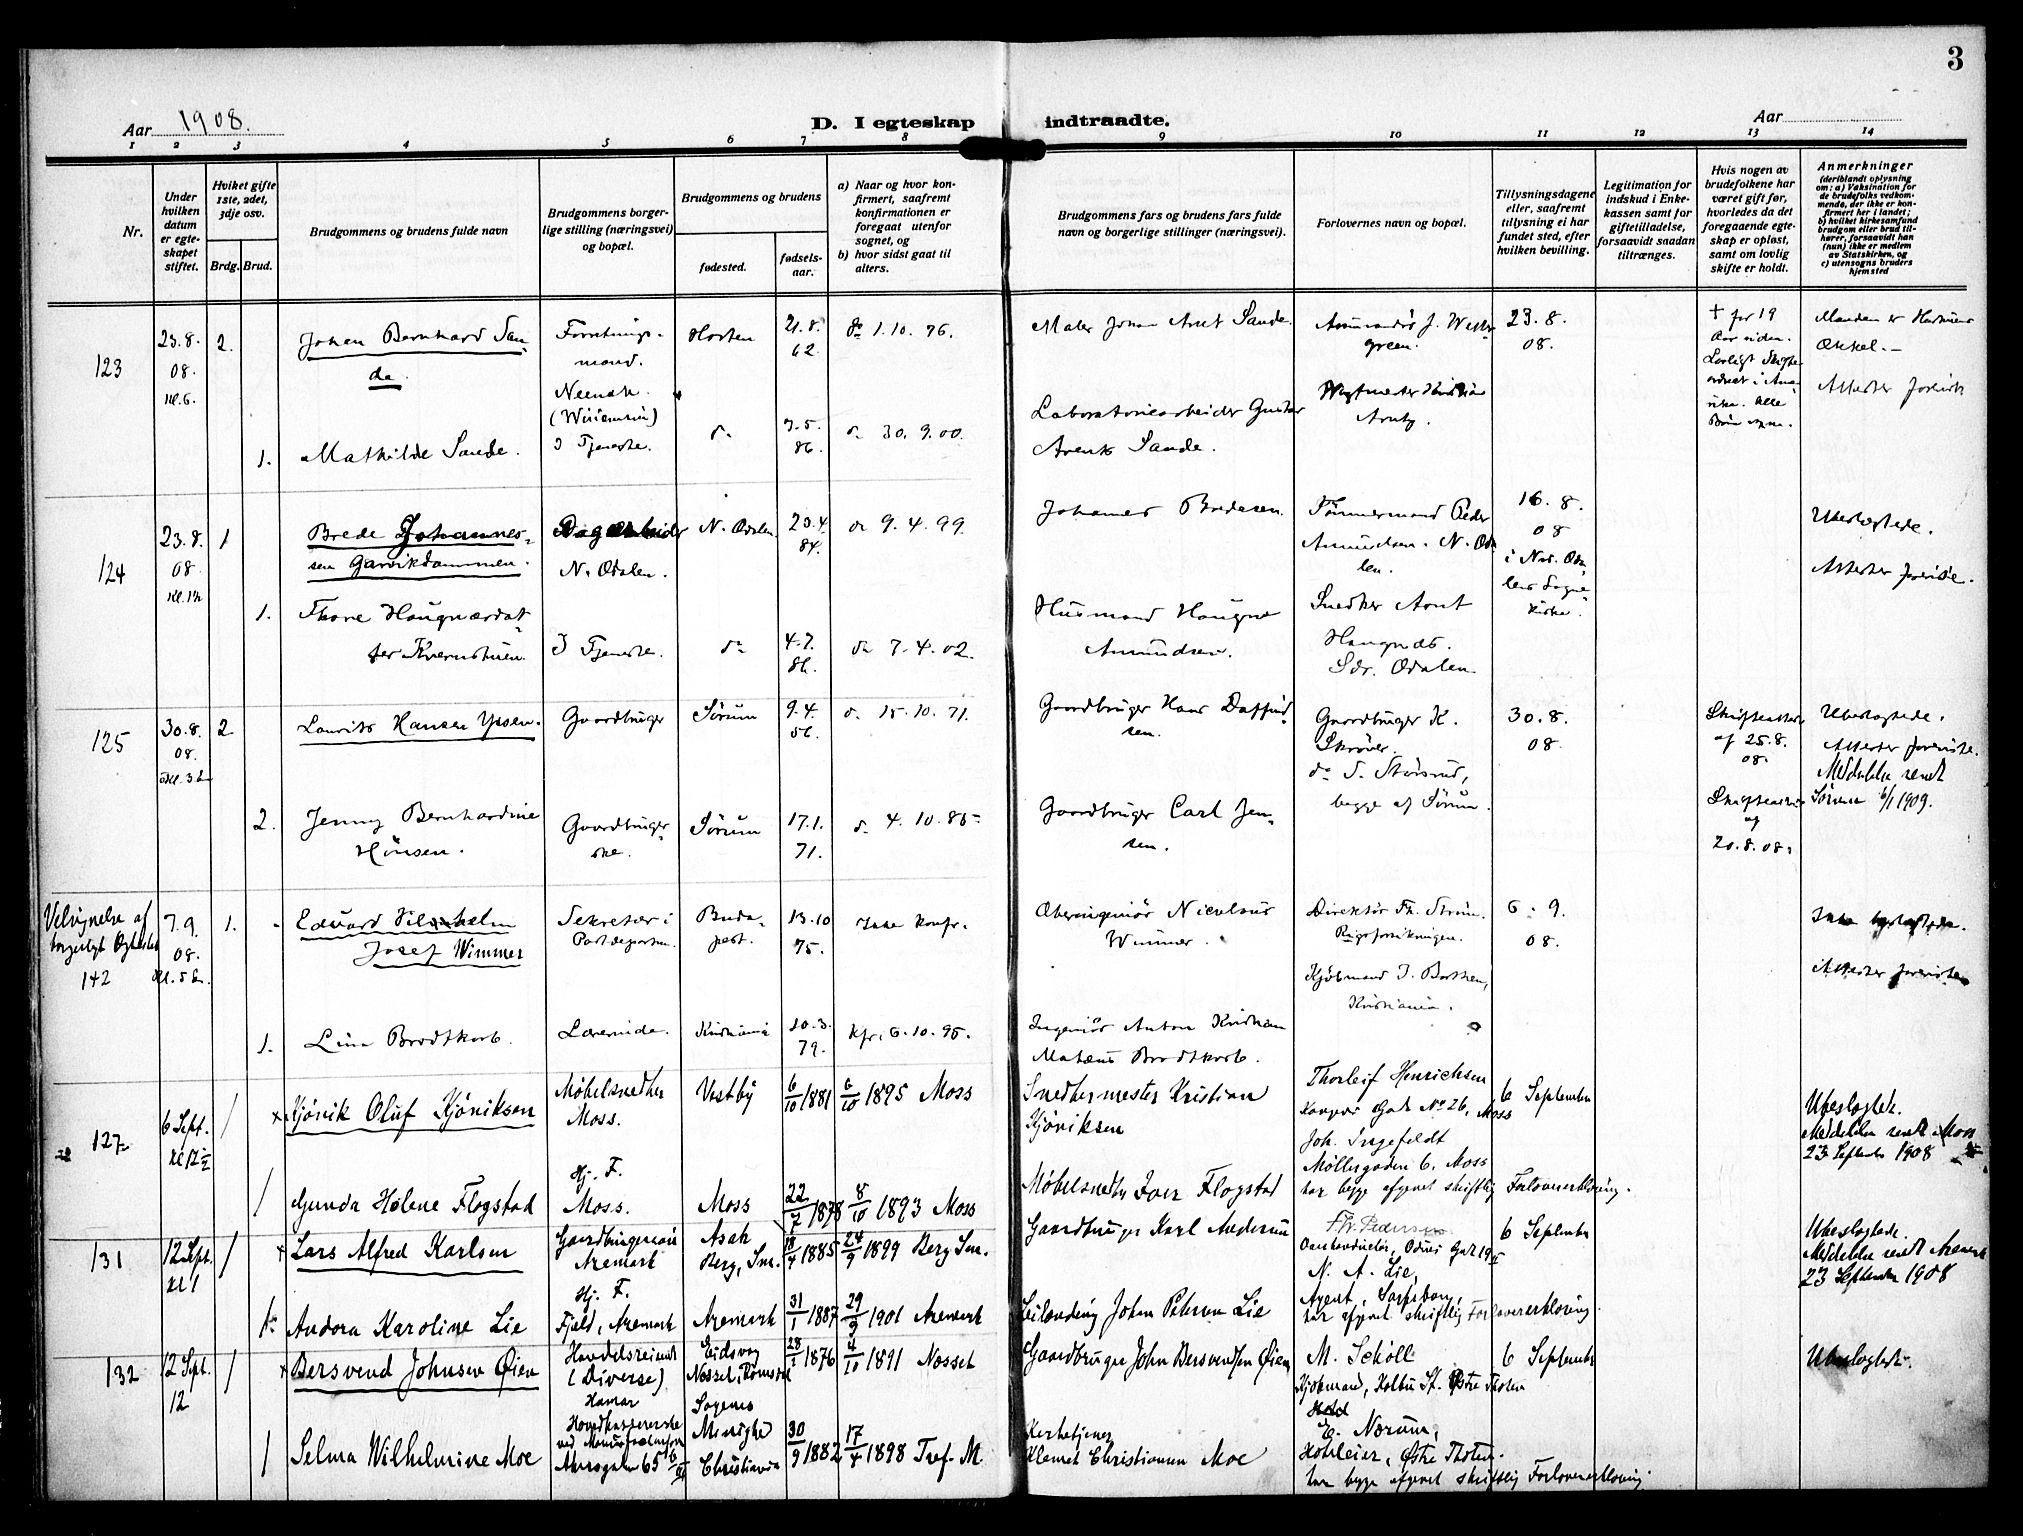 3
Aar 1908.
D. I egteskap indtraadte.
Aar
1 2 3 4 5 6 7 8 9 10 11 12 13 14
Nr.
Under hvilken datum er egteskapet stiftet.
Hvilket gifte 1ste, 2det, 3dje osv.
Brdg. Brud.
Brudgommens og brudens fulde navn
Brudgommens borgerlige stilling (næringsvei) og bopæl.
Brudgommens og brudens
fødested.
fødselsaar.
a) Naar og hvor konfirmert, saafremt konfirmationen er foregaat utenfor sognet, og
b) hvor sidst gaat til alters.
Brudgommens fars og brudens fars fulde navn og borgerlige stillinger (næringsvei).
Forlovernes navn og bopæl.
Tillysningsdagene eller, saafremt tillysning ei har fundet sted, efter hvilken bevilling.
Legitimation for indskud i Enkekassen samt for giftetilladelse, forsaavidt saadan tiltrænges.
Hvis nogen av brudefolkene har været gift før, hvorledes da det foregaaende egteskap er opløst, samt om lovlig skifte er holdt.
Anmerkninger
(deriblandt oplysning om: a) Vaksination for de brudefolks vedkommende, der ikke er konfirmert her i landet; b) hvilket kirkesamfund brudgom eller brud tilhører, forsaavidt han (hun) ikke er medlem av Statskirken, og c) utensogns bruders hjemsted
123
23.8.
08.
kl. 6.
2.
Johan Bernhard Sande.
Forretningsmand.
Horten
21.8.
62.
do 1.10.76.
Maler Johan Arnt Sande.
23.8.
08.
Manden er Hustruens
Onkel.
1.
Mathilde Sande.
I Tjeneste.
do
86.
do 30.9.00.
Laboratoriearbeider Gustav
Arents Sande.
124
23.8.
08.
1
Brede Johannessen Garvikdammen.
Dagarbeider
N. Odalen.
N. Odalen
23.4.
84.
do 9.4.99.
Johannes Bredesen.
Tømmermand Peder
Amundsen. N. Odalen.
16.8.
08
i Nor. Odalens Sognekirke.
Ubeslægtede.
Attester foreviste.
1.
Thore Haugnæsdatter Kvernstuen.
I Tjeneste.
do
86.
do 7.4.02.
Husmand Haugne
Amundsen.
Snedker Arnt
Haugnæs.
Sdr. Odalen
125
30.8.
08.
2
Laurits Hansen Ypsen.
Gaardbruger
Sørum
9.4.
56.
do 15.10.71.
Gaardbruger Hans Daffindsen.
Gaardbruger K.
Skrøver.
do
begge af Sørum.
30.8.
08.
Skifteattest
af 25.8.
08.
Ubeslægtede.
Attester foreviste.
Meddelelse sendt
Sørum 6/1 1909.
2.
Jenny Bernhardine
Hansen.
Gaardbrugerske.
Sørum
17.1.
71.
do 4.10.85
Gaardbruger Carl Jensen.
Skifteattest
af
20.8.08.
Velsignelse af
borgerligt Ægteskab
142
7.9.
08.
1.
Edvard Vilhelm
Josef Wimmer
Sekretær i
Budapest.
13.10
75.
Ikke konfr.
Overingeniør Nicolaus
Wimmer.
Direktør Th. Strøm.
Kjøbmand
Kristiania.
6.9.
08.
Ikke beslægtede.
Attester foreviste
1.
Lina Brodtkorb.
Lærerinde.
Kristiania
20.3.
79.
kfr. 6.10.95.
Ingeniør Anton Kristian
Mathæus Brodtkorb.
127
6 Sept.
kl 12½
1
Kjønik Oluf Kjøniksen
Møbelsnedker
Moss.
Vestby
6/10 1881
6/10 1895 Moss
Snedkermester Kristian
Kjøniksen
Thorleif Henrichsen
Kongens Gade No 26, Moss
Joh. Ingefeldt
Møllergaden 6. Moss
har begge afgivet skriftlig Forlovererklæring.
6 September
Ubeslægtede.
Meddelelse sendt Moss
23 September 1908
1
Gunda Helene Flogstad
Hj. F.
Moss.
Moss
22/7 1878
8/10 1893 Moss
Møbelsnedker Iver Flogstad
131
12 Sept.
kl 1
1
Lars Alfred Karlsen
Gaardbrugersøn
Aremark
Asak
Berg, Sm.
18/4 1885
24/9 1899 Berg Sm.
Gaardbruger Karl Andersen
Th. Pedersen
N. A. Lie,
Agent, Sarpsborg,
har afgivet skriftlig Forlovererklæring.
6 September
Ubeslægtede.
Meddelelse sendt Aremark
23 September 1908
1
Andora Karoline Lie
Hj. F.
Fjeld, Aremark
Aremark
31/1 1887
29/9 1901 Aremark
Leilænding Johan Petersen Lie
132
12 Sept.
12
1
Bersvend Johnsen Øien
Handelsreisende
(Diverse)
Hamar
Eidsvaag
Nesset, Romsdal
28/1 1876
4/10 1891 Nesset
Gaardbruger John Bersvendsen Øien
M. Schøll
Kjøbmand, Kolbu St. Østre Thoten
E. Norum,
Hoteleier, Østre Thoten.
har begge afgivet skriftlig Forlovererklæring.
6 September
Ubeslægtede.
1
Selma Wilhelmine Moe
Sogenes
Menighed
Christiania
30/9 1882
17/4 1898 Tref. M.
Kirketjener
Klemet Christiansen Moe